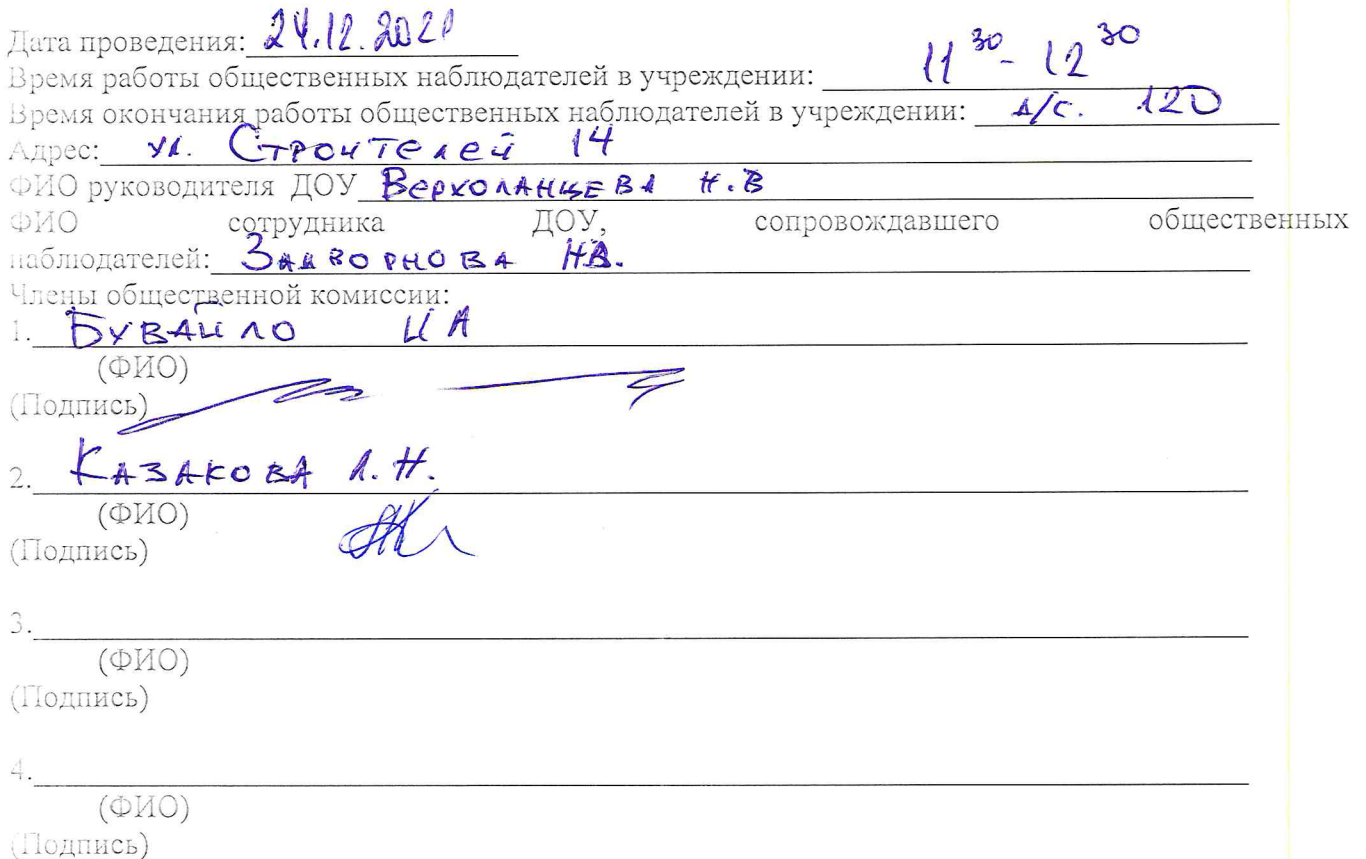 Дата проведения: 24.12.2020
Время работы общественных наблюдателей в учреждении: 11 30 - 12 30
Время окончания работы общественных наблюдателей в учреждении: д/с. 120
Адрес: ул. Строителей 14
ФИО руководителя ДОУ Верхоланцева Н.В
ФИО сотрудника ДОУ, сопровождавшего общественных
наблюдателей: Задворнова НВ.
Члены общественной комиссии:
1. Бувайло И А
(ФИО)
(Подпись)
2. Казакова Л.Н.
(ФИО)
(Подпись)
3.
(ФИО)
(Подпись)
4.
(ФИО)
(Подпись)